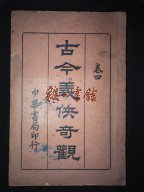 卷四
古今義俠奇觀
中華書局印行